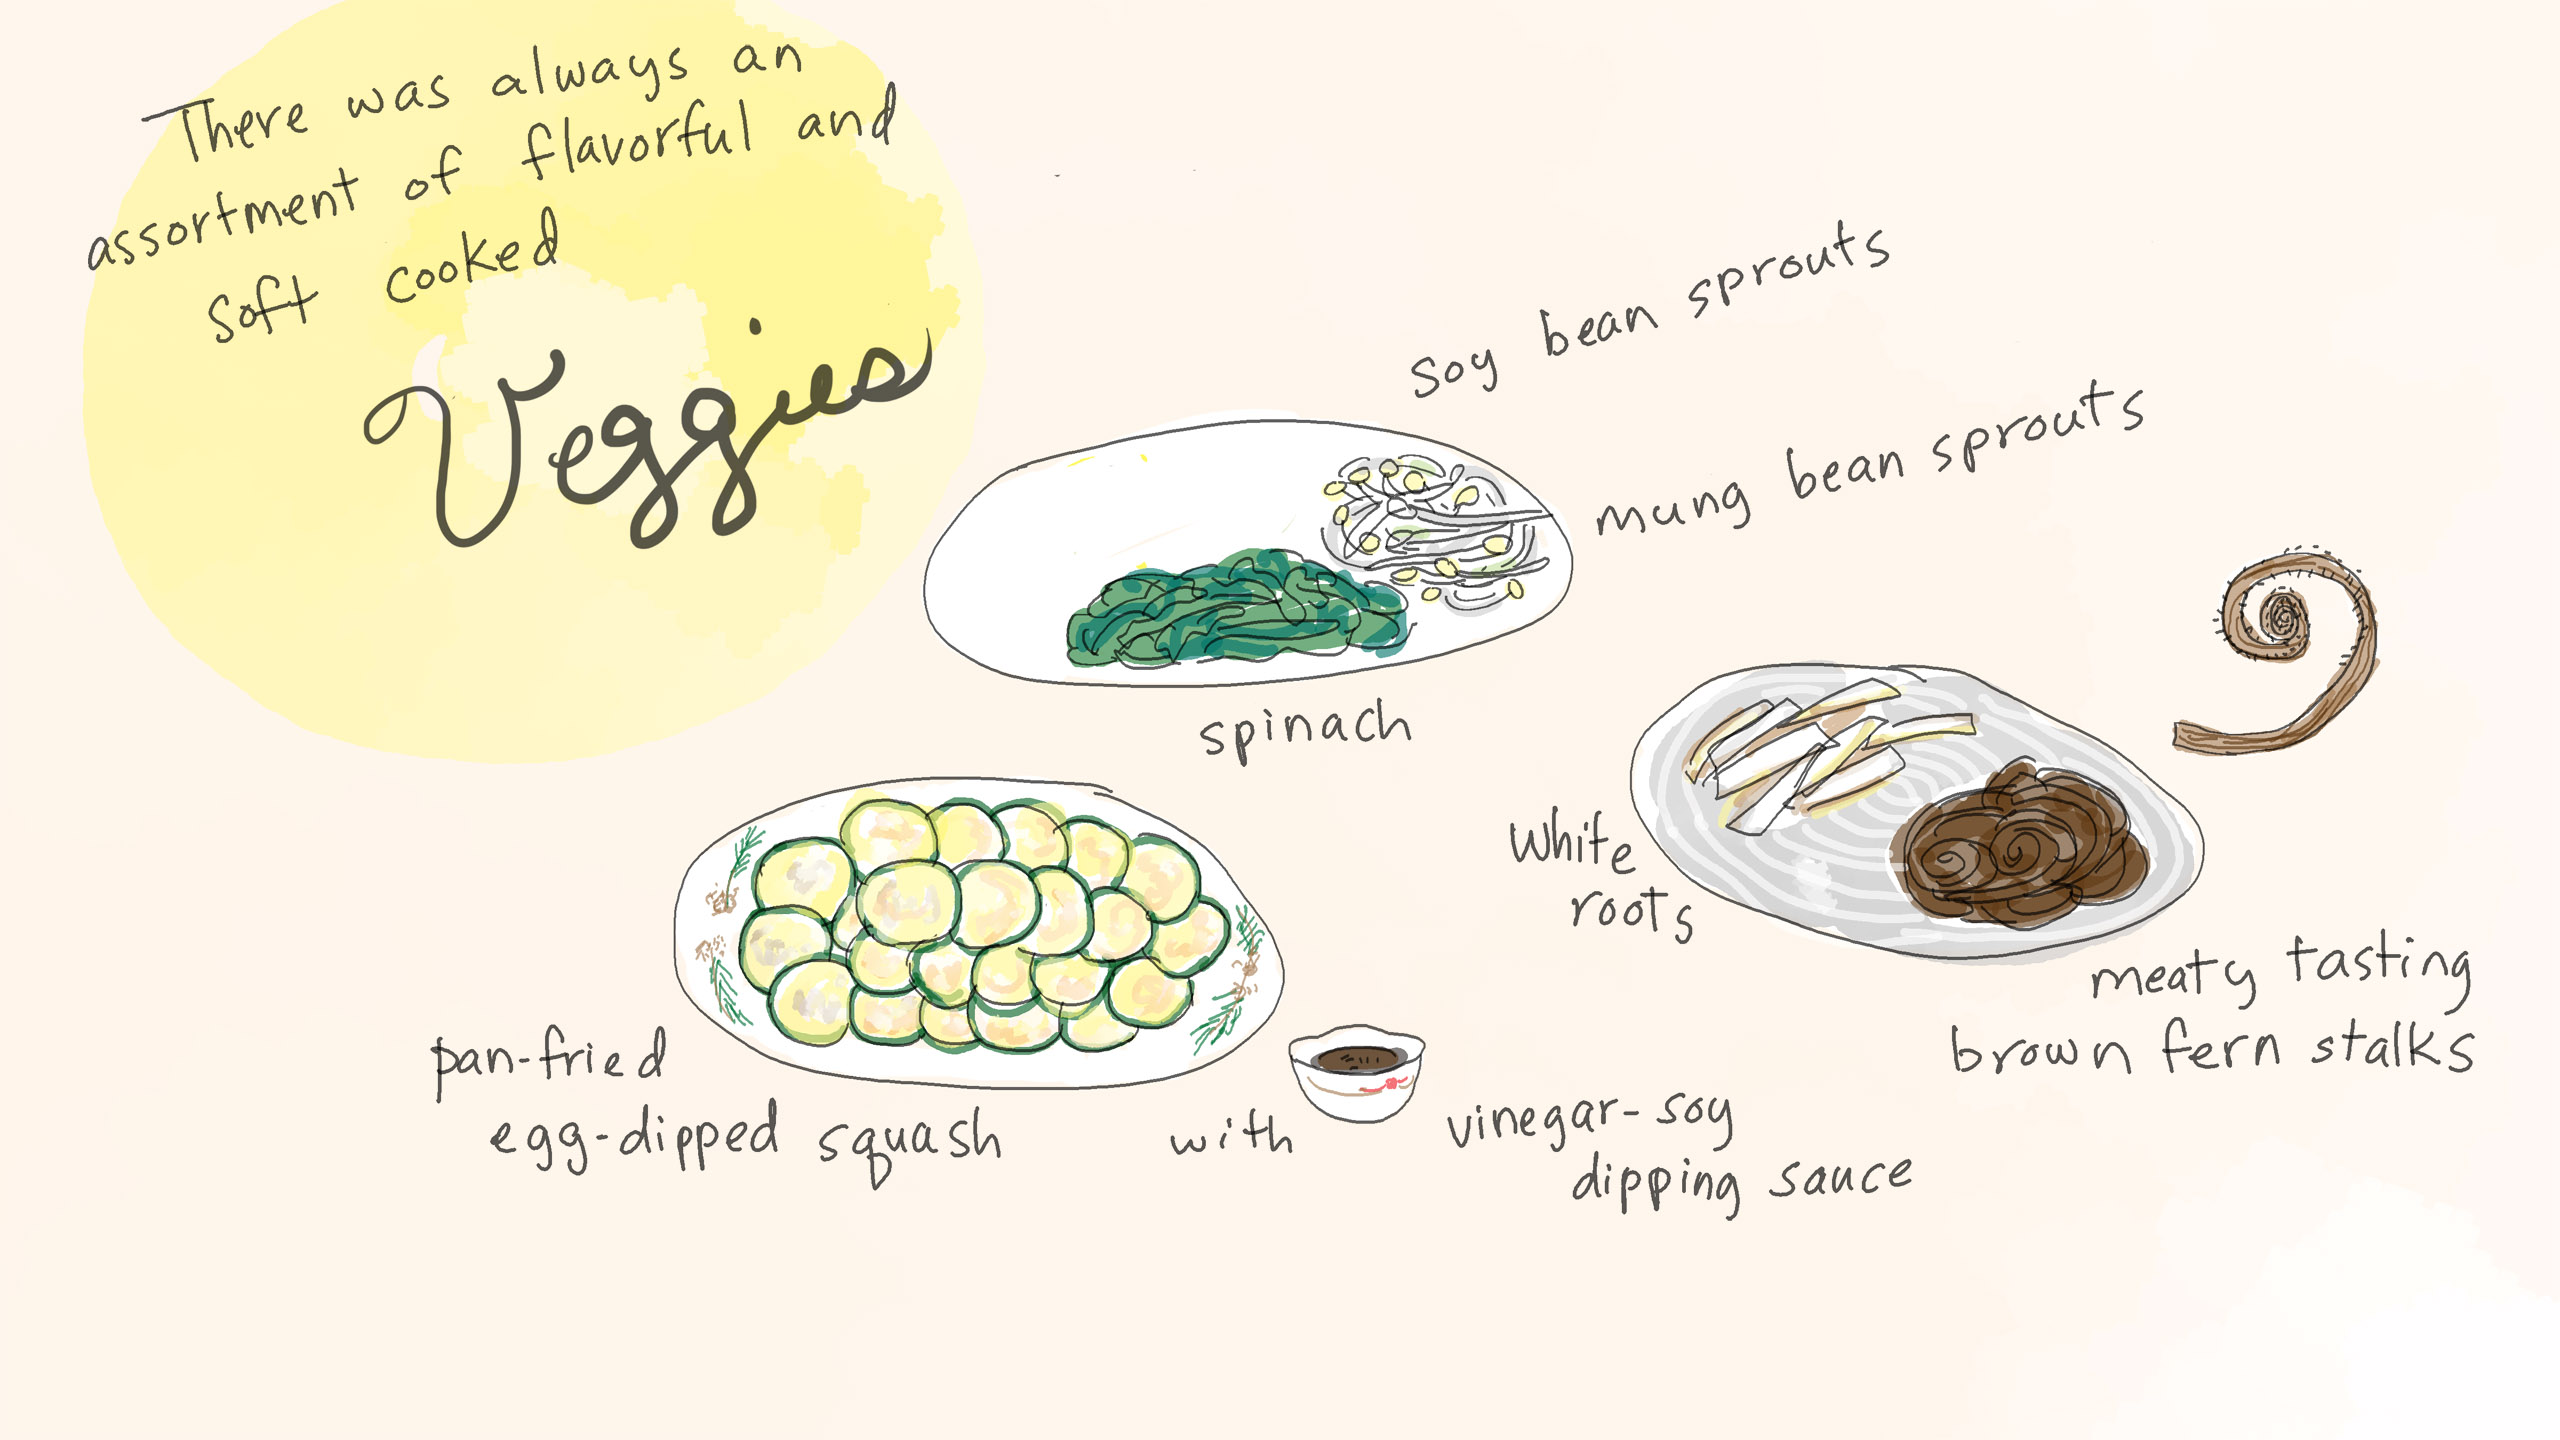 There was always an
assortment of flavorful and
soft cooked
Veggies
soy bean sprouts
mung bean sprouts
spinach
white
roots
meaty tasting
brown fern stalks
pan-fried
egg-dipped squash with vinegar-soy
dipping sauce